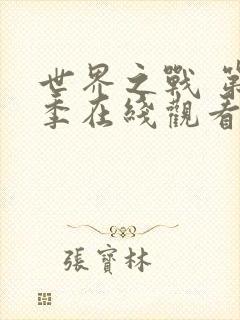 世界之戰 第
季在綫觀看
張寶林